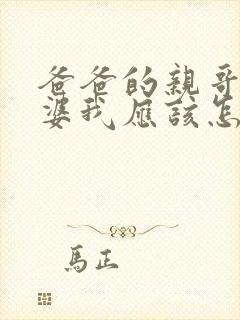 爸爸的親哥
婆我應該怎
馬正